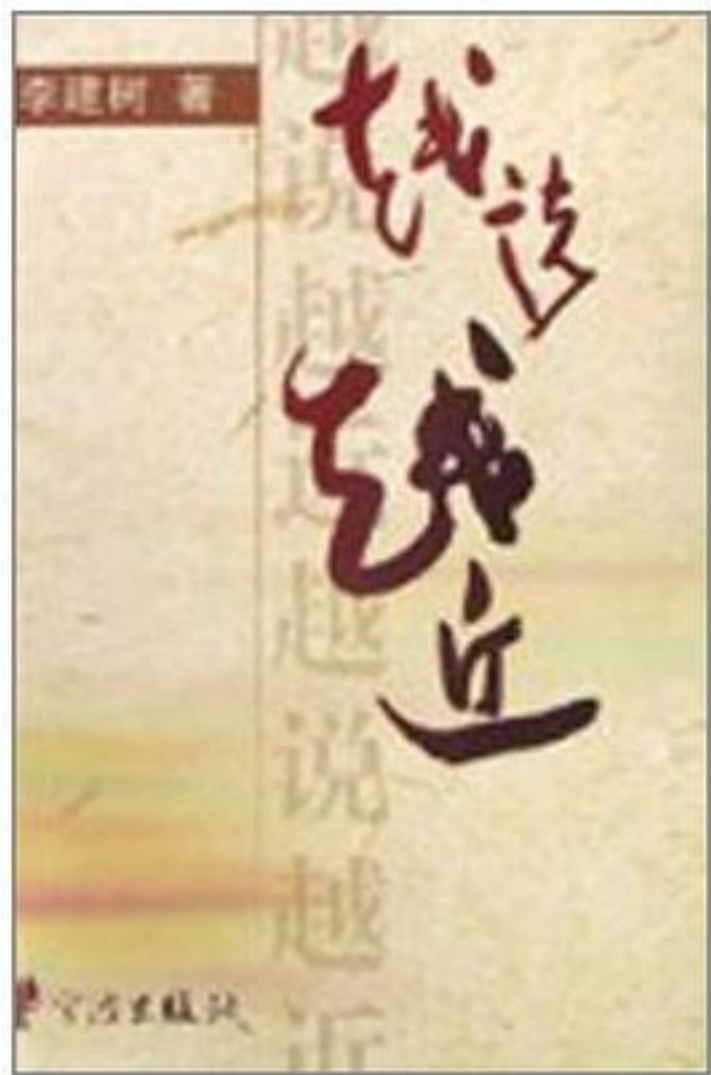 李建树 著
越说
越
近
越说越近越说越近
宁波出版社